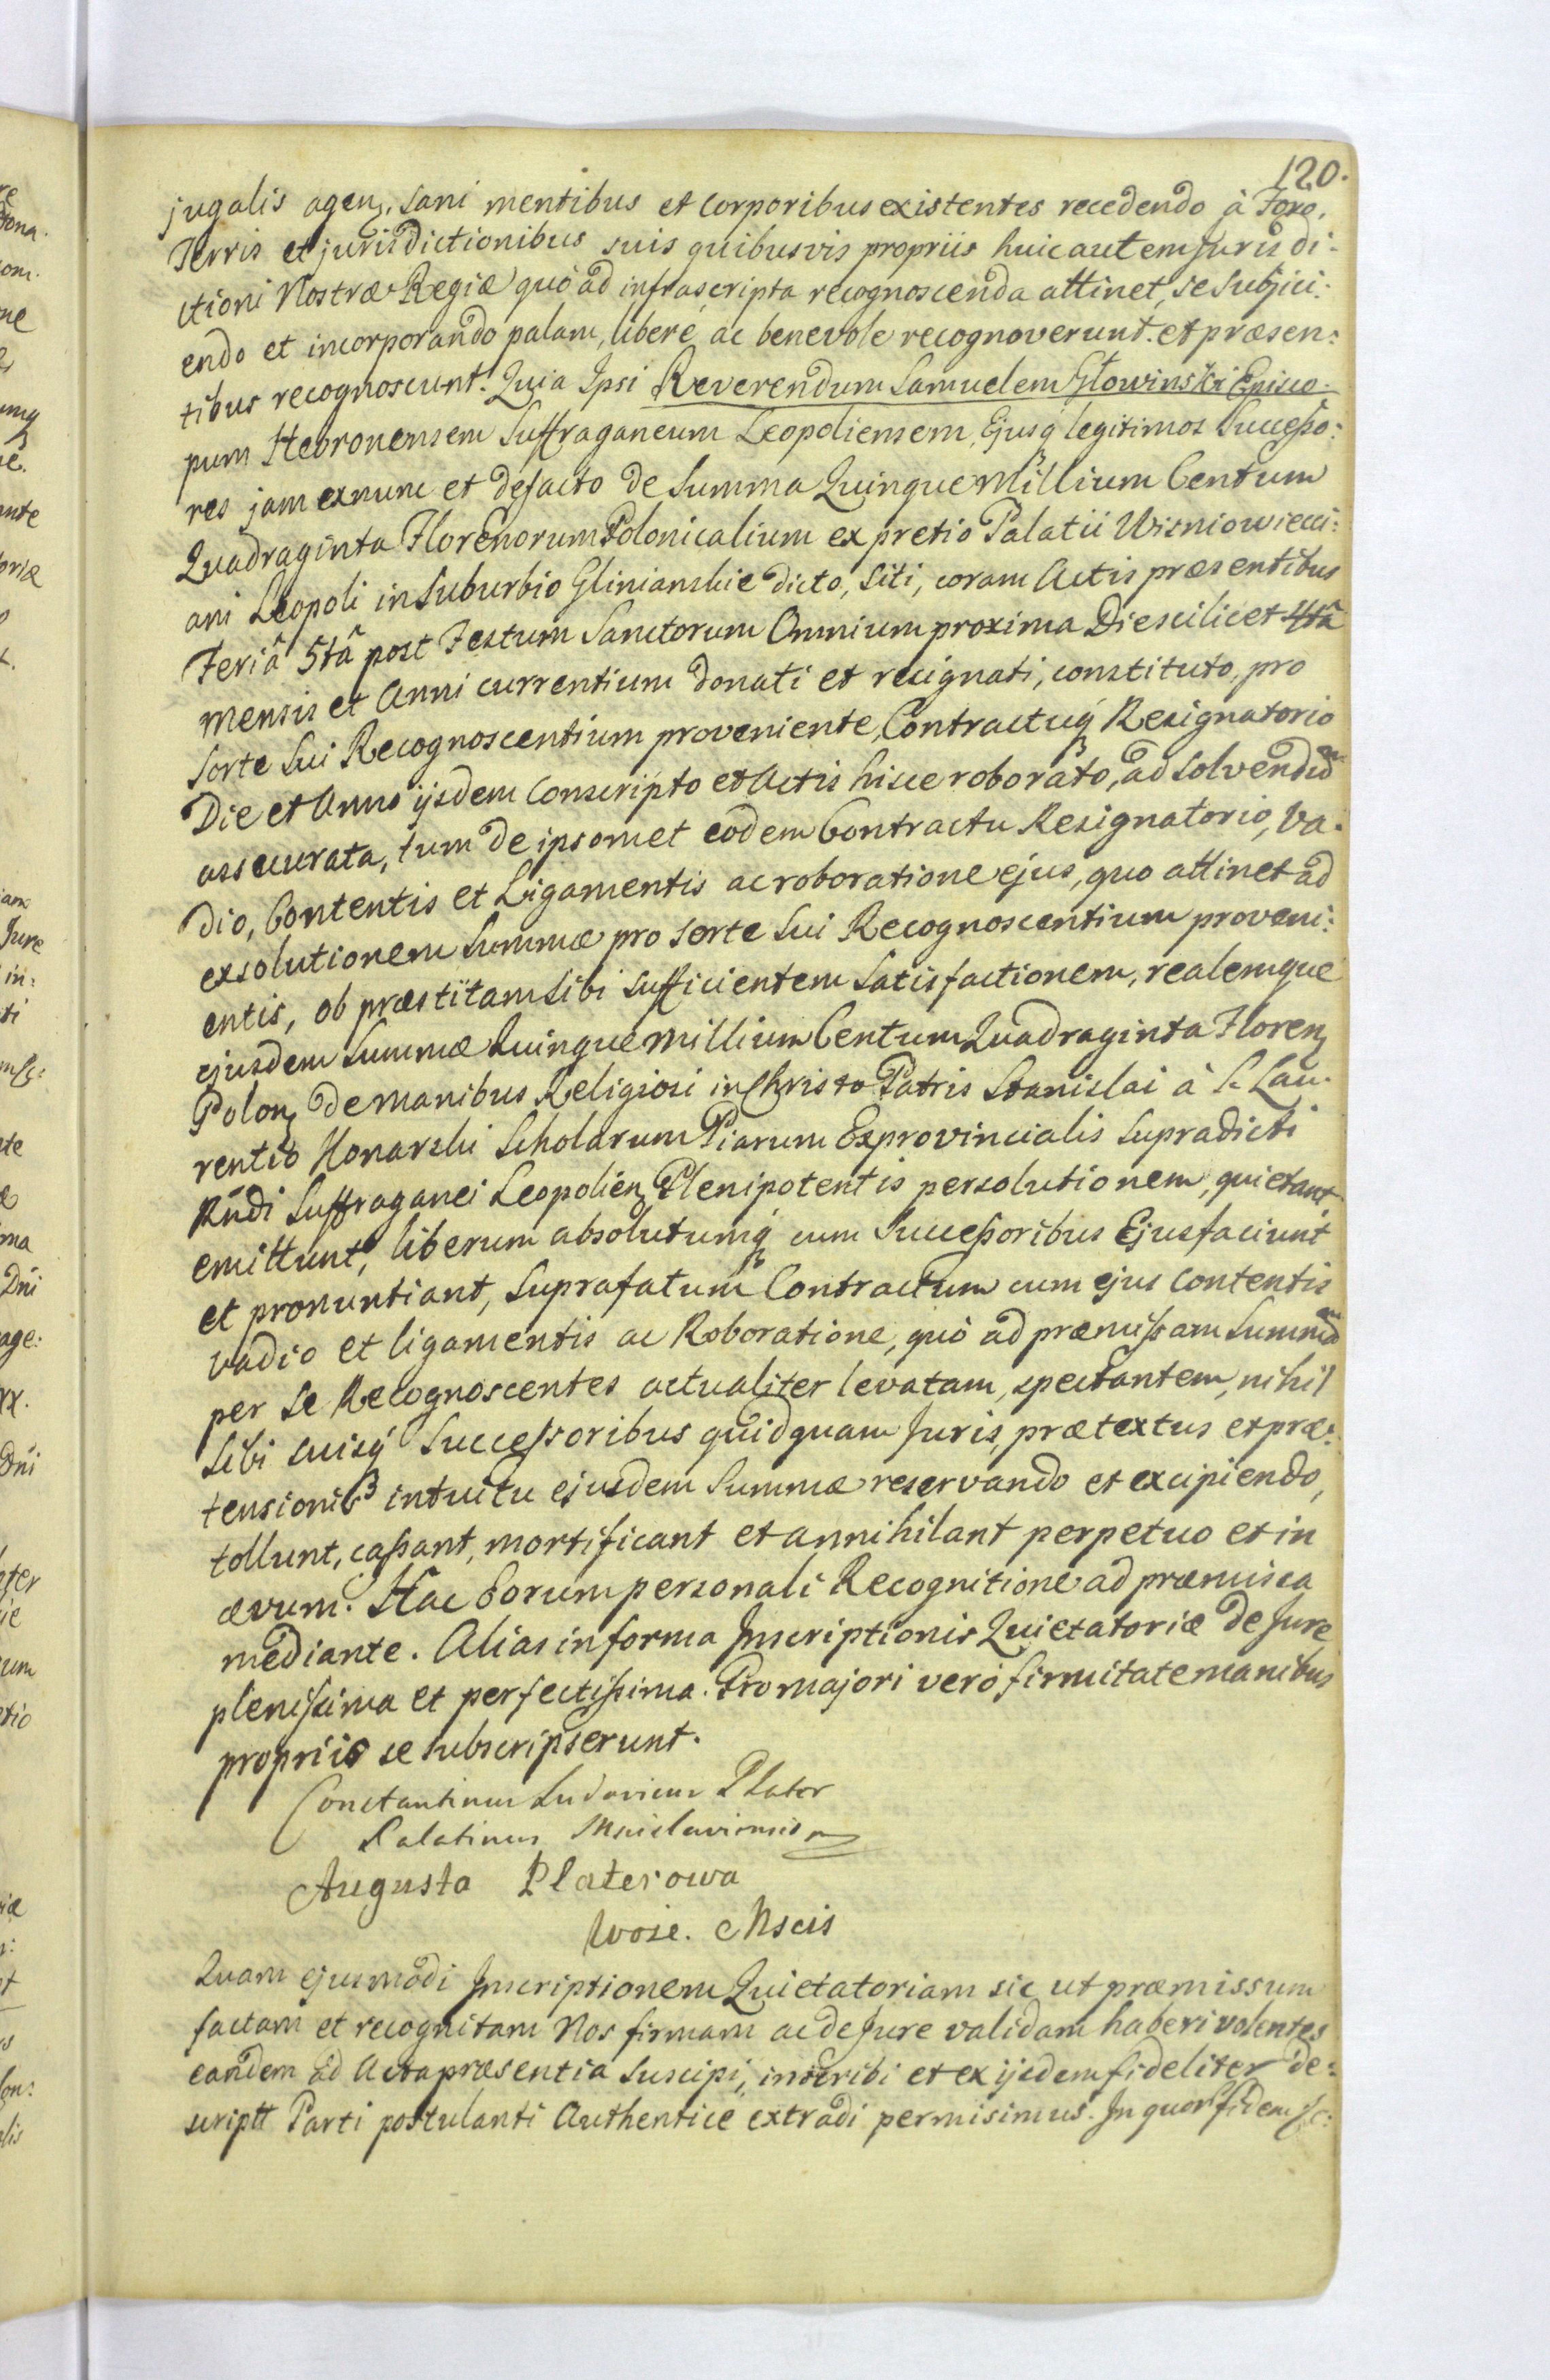 120.
jugalis agen, sani mentibus et corporibus existentes recedendo à Foro,
Terris et jurisdictionibus suis quibusvis propriis huic autem Juris di:
ctioni Nostræ Regiæ quò ad infrascripta recognoscenda attinet, se subjici:
endo et incorporando palam, liberè, ac benevole recognoverunt. et præsen:
tibus recognoscunt. Quia Ipsi Reverendum Samuelem Głowinski Episco-
pum Hebronensem Suffraganeum Leopoliensem, Ejusq legitimos Successo:
res jam exnunc et defacto de Summa Quinque Millium Centum
Quadraginta Florenorum Polonicalium ex pretio Palatii Wisniowiecci:
ani Leopoli in Suburbio Glinianskie dicto, siti, coram Actis præsentibus
Feriâ 5tâ post Festum Sanctorum Omnium proxima Die scilicet 4tâ
mensis et Anni currentium donati et resignati, constituto, pro
sorte sui Recognoscentium proveniente, Contractuq Resignatorio
Die et Anno ijsdem conscripto et Actis hisce roborato, ad solvendum
assecurata, tum de ipsomet eodem Contractu Resignatorio, Va-
dio, Contentis et Ligamentis ac roboratione ejus, quo attinet ad
exsolutionem Summæ pro sorte sui Recognoscentium proveni:
entis, ob præstitam sibi sufficientem satisfactionem, realemque
ejusdem Summæ Quinque millium Centum Quadraginta Floren
Polon de manibus Religiosi in Christo Patris Stanislai à S. Lau-
rentio Konarski Scholarum Piarum Exprovincialis supradicti
Rndi Suffraganei Leopolien Plenipotentis persolutionem, quietant
emittunt, liberum absolutumq cum Successoribus Ejus faciunt
et pronuntiant, suprafatum Contractum cum ejus contentis
vadio et ligamentis ac Roboratione, quò ad præmissam Summam
per se Recognoscentes actualiter levatam, spectantem, nihil
sibi suisq Successoribus quidquam Juris, prætextus et præ:
tensionis intuitu ejusdem Summæ reservando et excipiendo,
tollunt, cassant, mortificant et annihilant perpetuo et in
ævum. Hac Eorum personali Recognitione ad præmissa
mediante. Alias in forma Inscriptionis Quietatoriæ de Jure
plenissima et perfectissima. Pro majori verò firmitate manibus
propriis se subscripserunt.
Constantinus Ludovicus Plater
Palatinus Mscislaviensis
Augusta Platerowa
Woie. Mscis
Quam ejusmodi Inscriptionem Quietatoriam sic ut præmissum
factam et recognitam Nos firmam ac de Jure validam haberi volentes
eandem ad Acta præsentia suscipi, inscribi et ex ijsdem fideliter de:
scriptt Parti postulanti Authentice extradi permisimus. In quor fidem